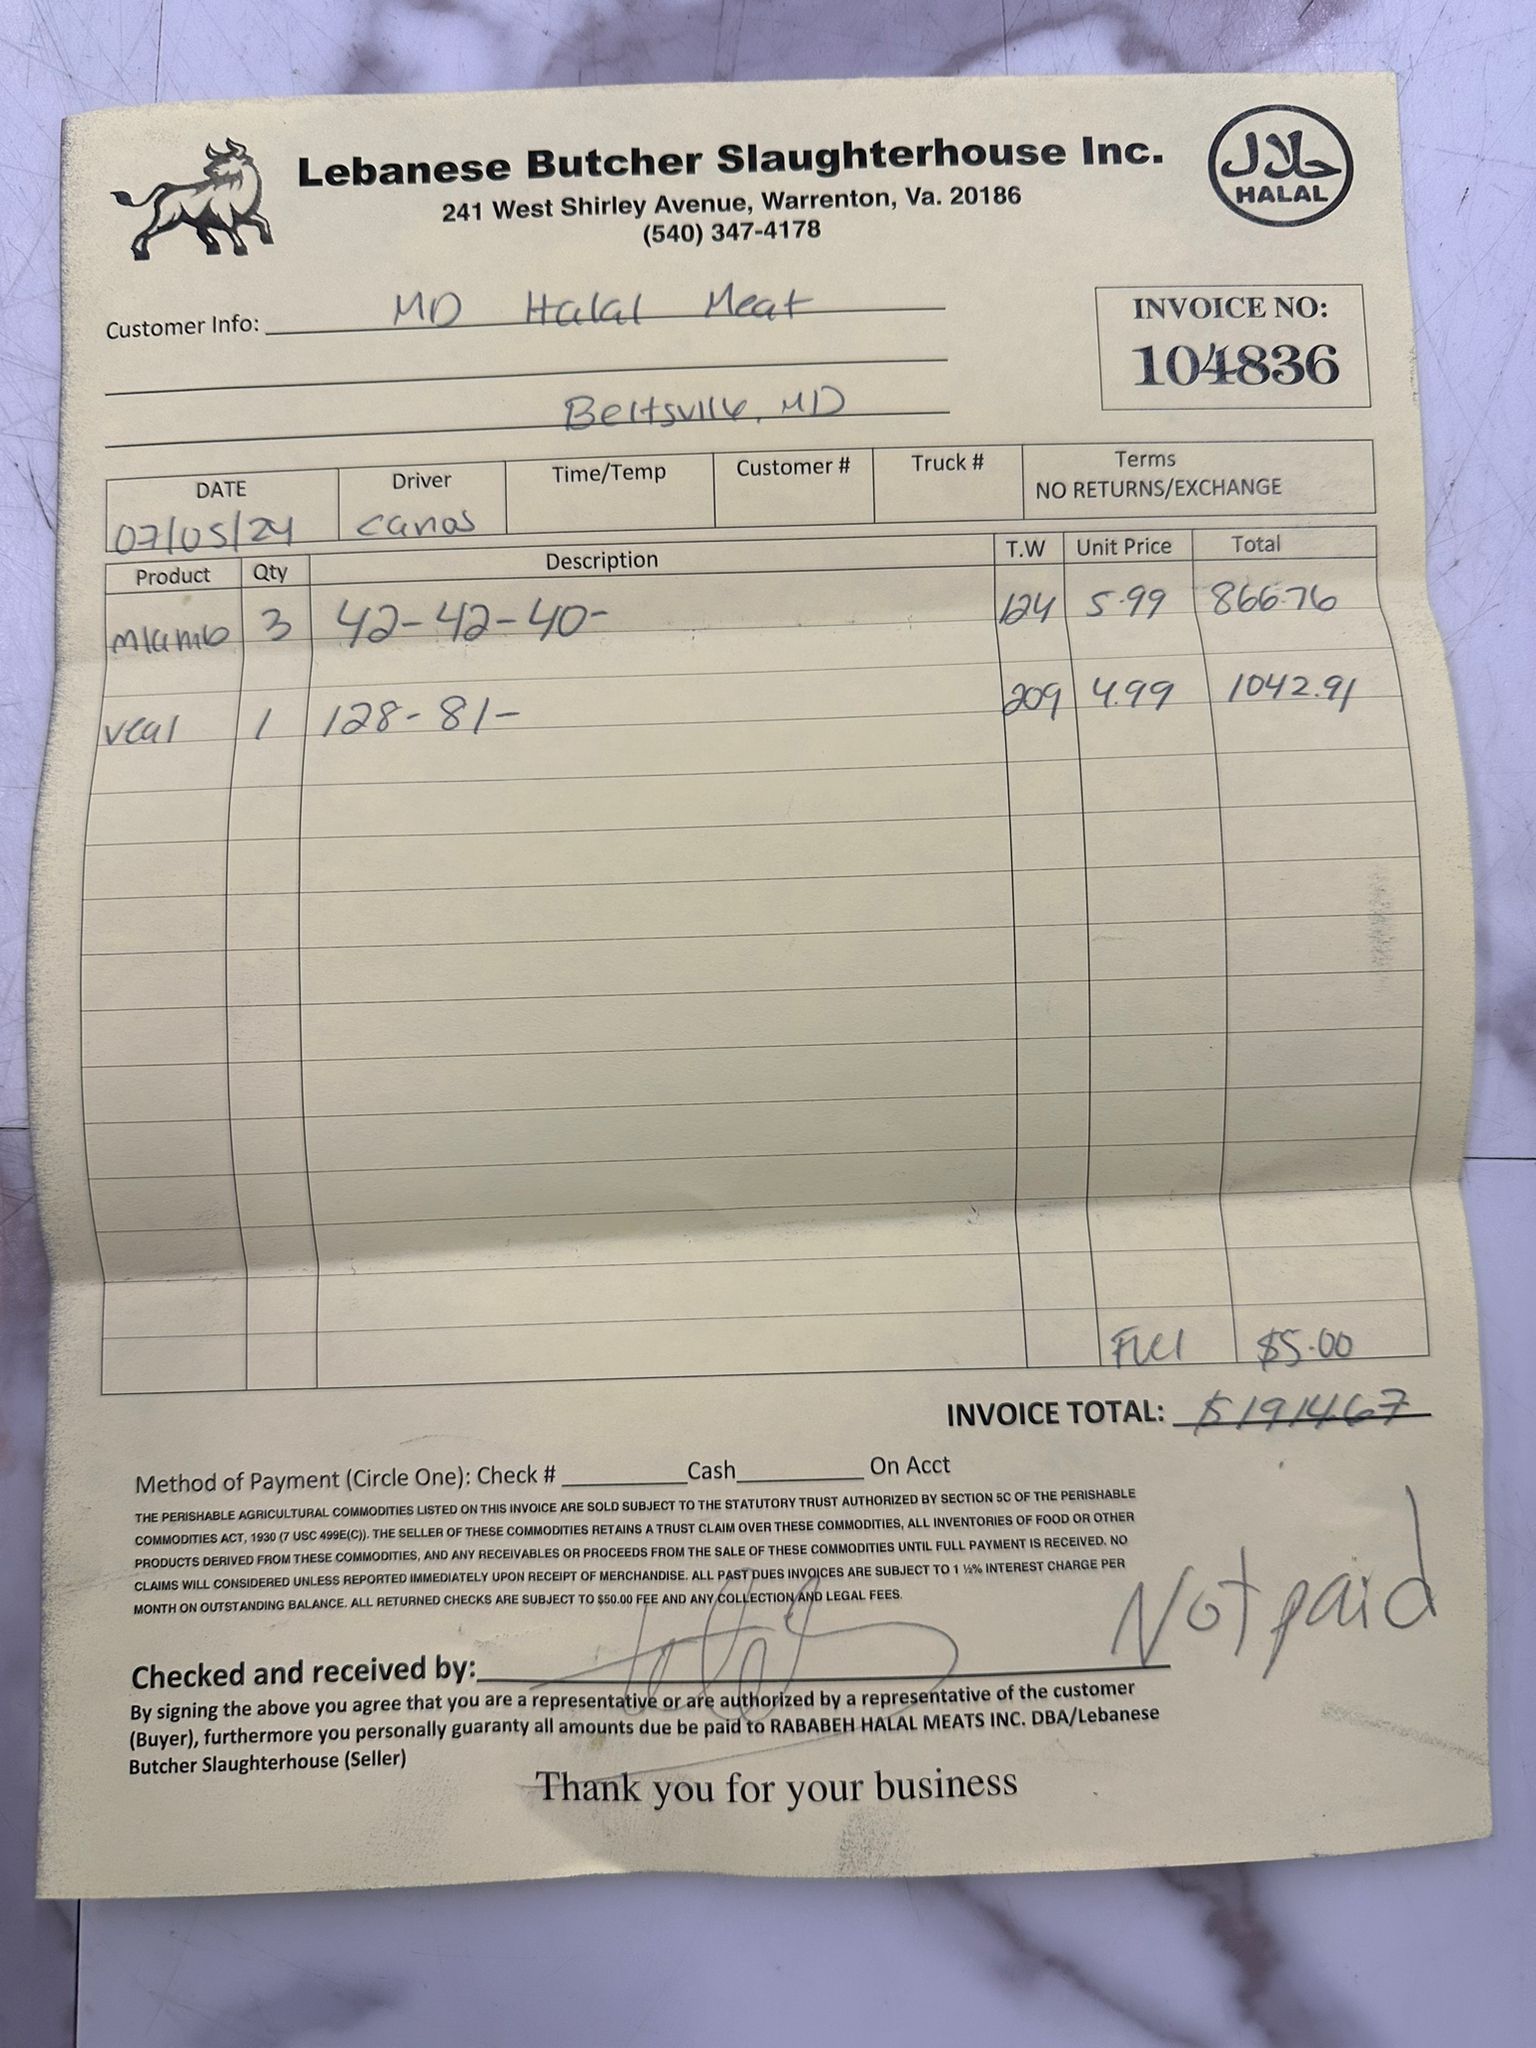 Lebanese Butcher Slaughterhouse Inc.
241 West Shirley Avenue, Warrenton, Va. 20186
(540) 347-4178
حلال
HALAL
Customer Info: MD Halal Meat
Beltsville, MD
INVOICE NO:
104836
DATE Driver Time/Temp Customer # Truck # Terms
NO RETURNS/EXCHANGE
07/05/24
Product Qty Description T.W Unit Price Total
mlamb 3 42-42-40- 124 5.99 866.76
veal 1 128-81- 209 4.99 1042.91
Fuel $5.00
INVOICE TOTAL: $1914.67
Method of Payment (Circle One): Check # Cash On Acct
THE PERISHABLE AGRICULTURAL COMMODITIES LISTED ON THIS INVOICE ARE SOLD SUBJECT TO THE STATUTORY TRUST AUTHORIZED BY SECTION 5C OF THE PERISHABLE
COMMODITIES ACT, 1930 (7 USC 499E(C)). THE SELLER OF THESE COMMODITIES RETAINS A TRUST CLAIM OVER THESE COMMODITIES, ALL INVENTORIES OF FOOD OR OTHER
PRODUCTS DERIVED FROM THESE COMMODITIES, AND ANY RECEIVABLES OR PROCEEDS FROM THE SALE OF THESE COMMODITIES UNTIL FULL PAYMENT IS RECEIVED. NO
CLAIMS WILL CONSIDERED UNLESS REPORTED IMMEDIATELY UPON RECEIPT OF MERCHANDISE. ALL PAST DUES INVOICES ARE SUBJECT TO 1 ½% INTEREST CHARGE PER
MONTH ON OUTSTANDING BALANCE. ALL RETURNED CHECKS ARE SUBJECT TO $50.00 FEE AND ANY COLLECTION AND LEGAL FEES.
Not paid
Checked and received by:
By signing the above you agree that you are a representative or are authorized by a representative of the customer
(Buyer), furthermore you personally guaranty all amounts due be paid to RABABEH HALAL MEATS INC. DBA/Lebanese
Butcher Slaughterhouse (Seller)
Thank you for your business